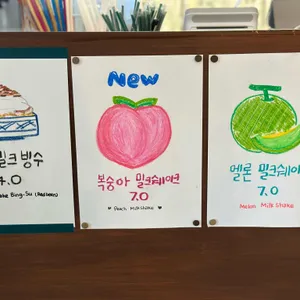 밀크 빙수
Bing-Su
New
복숭아 밀크쉐이크
7.0
♥ Peach Milk Shake ♥
멜론 밀크쉐이크
7.0
Melon Milk Shake